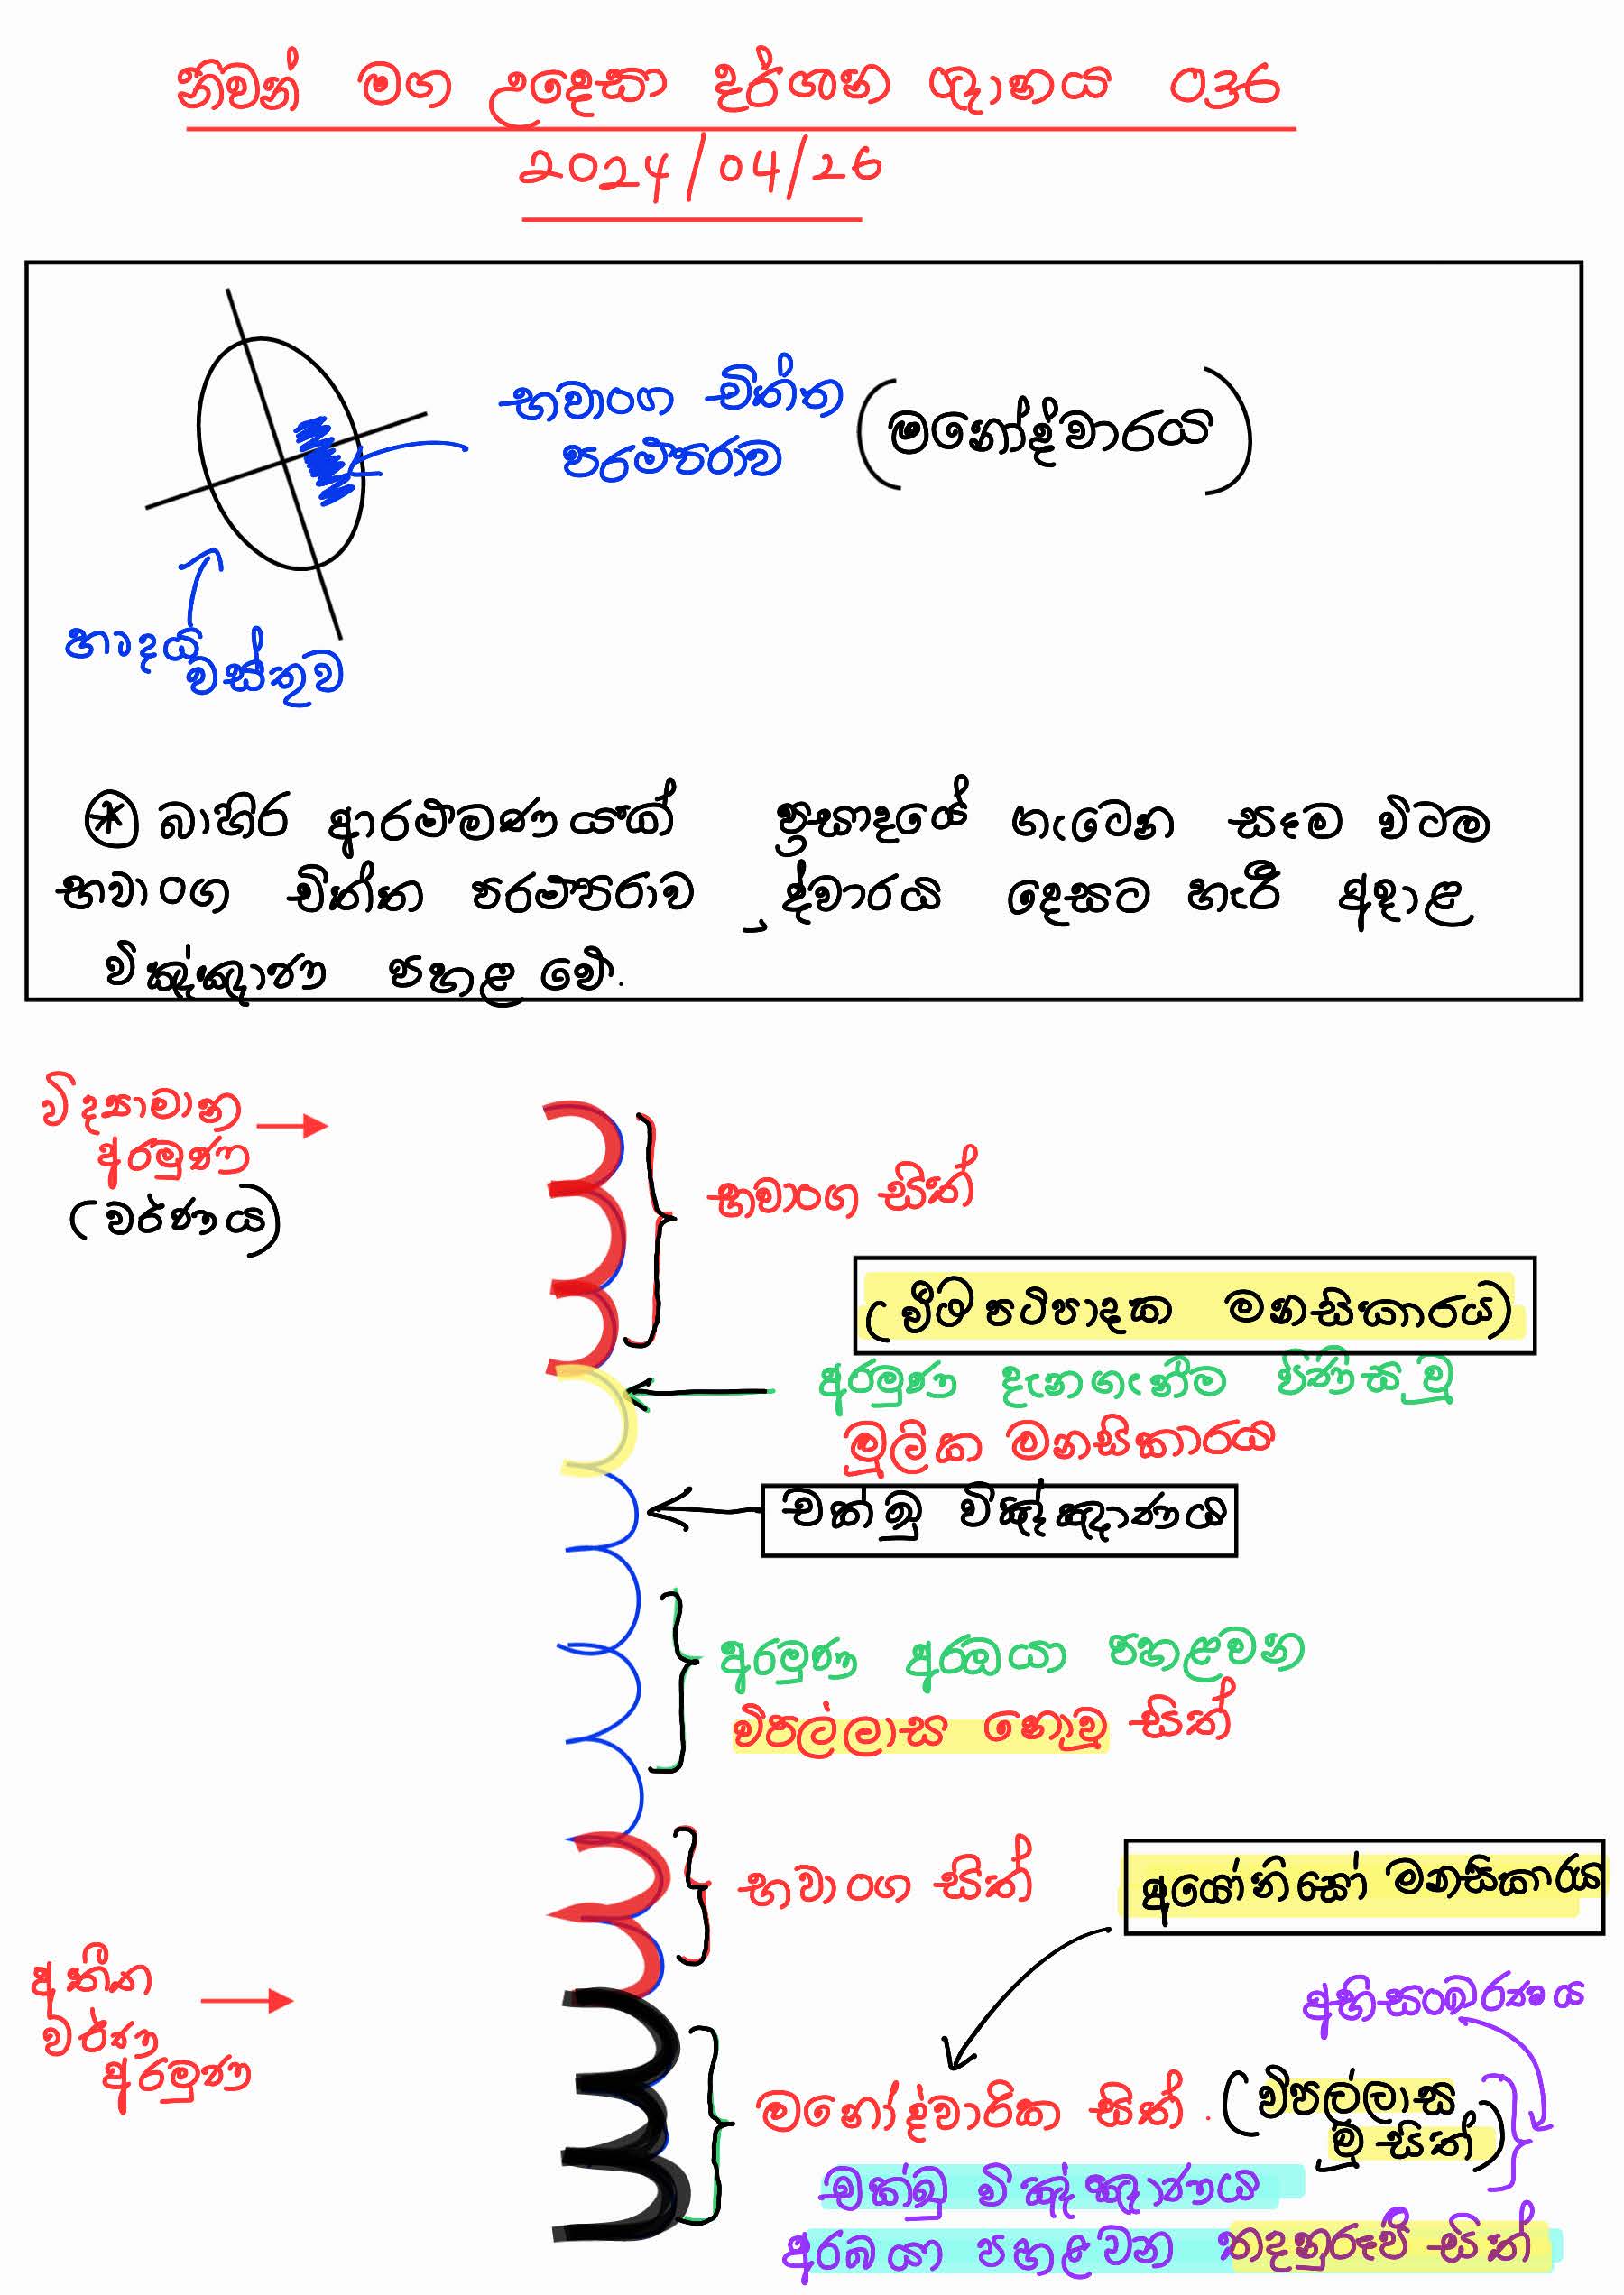 නිවන් මග උදෙසා දර්ශන ඥානය 036
2024/04/26
භවාංග චිත්ත
පරම්පරාව
(මනෝද්වාරයි)
හෘදයි
වස්තුව
බාහිර ආරම්මණයක් ප්‍රසාදයේ ගැටෙන සෑම විටම
භවාංග චිත්ත පරම්පරාව ද්වාරයි දෙසට හැරී අදාළ
විඤ්ඤාණ පහළ වේ.
විද්‍යාමාන
අරමුණ
(වර්ණය)
භවාංග සිත්
(වීථි පටිපාදක මනසිකාරය)
අරමුණ දැනගැනීම පිණිස වූ
මූලික මනසිකාරය
චක්ඛු විඤ්ඤාණය
අරමුණ අරබයා පහළවන
විපල්ලාස නොවූ සිත්
භවාංග සිත්
අයෝනිසෝ මනසිකාරය
අතීත
වර්ණ
අරමුණ
අභිසංඛරණය
මනෝද්වාරික සිත්.
(විපල්ලාස
වූ සිත්)
චක්ඛු විඤ්ඤාණය
අරබයා පහළවන තදනුරූපී සිත්